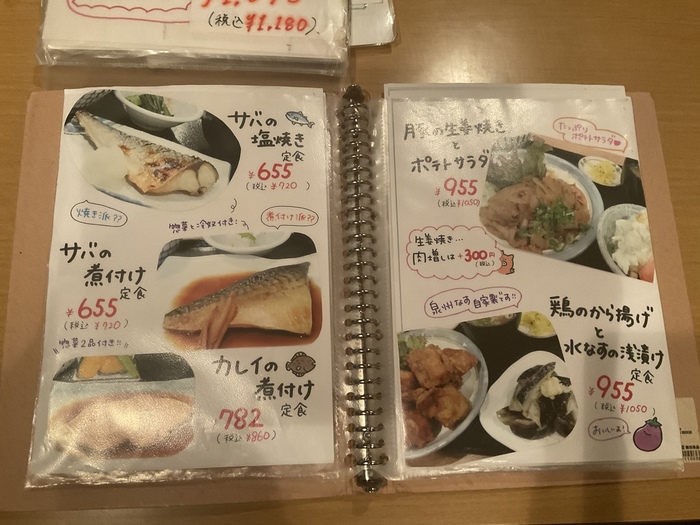 (税込¥1,180)
サバの
塩焼き
定食
¥655
(税込 ¥720)
焼き派??
惣菜と冷奴付き!
煮付け派??
サバの
煮付け
定食
¥655
(税込 ¥720)
惣菜2品付き!!
カレイの
煮付け
定食
782
(税込 ¥860)
豚の生姜焼き
と
ポテトサラダ
¥955
(税込¥1050)
たっぷり
ポテトサラダ
生姜焼き…
肉増しは+300円
(税込)
泉州なす自家製です!!
鶏のから揚げ
と
水なすの浅漬け
定食
¥955
(税込 ¥1050)
おいしいよ!